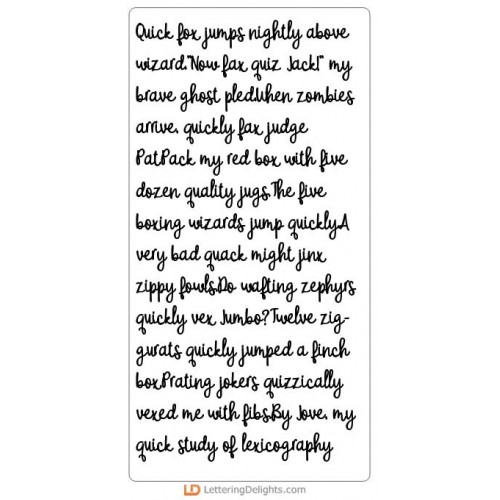 Quick fox jumps nightly above
wizard."Now fax quiz Jack!" my
brave ghost pled.When zombies
arrive, quickly fax judge
Pat.Pack my red box with five
dozen quality jugs.The five
boxing wizards jump quickly.A
very bad quack might jinx
zippy fowls.Do wafting zephyrs
quickly vex Jumbo?Twelve zig-
gurats quickly jumped a finch
box.Prating jokers quizzically
vexed me with fibs.By Jove, my
quick study of lexicography
LD LetteringDelights.com